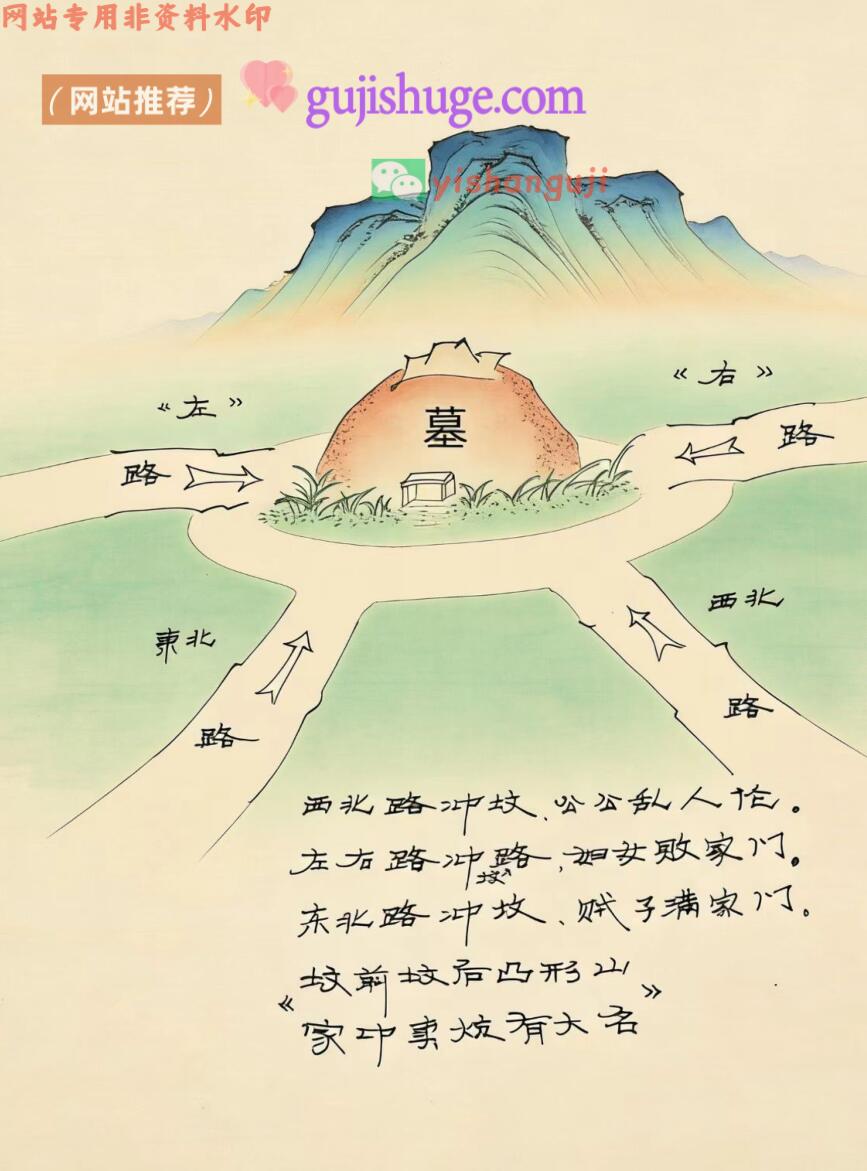 网站专用非资料水印
（网站推荐）
gujishuge.com
yishanguji
《左》
《右》
路
路
墓
东北
西北
路
路
西北路冲坟、公公乱人伦。
左右路冲路，妇女败家门。
坟
东北路冲坟、贼子满家门。
《坟前坟后凸形山
家中事
有大名》